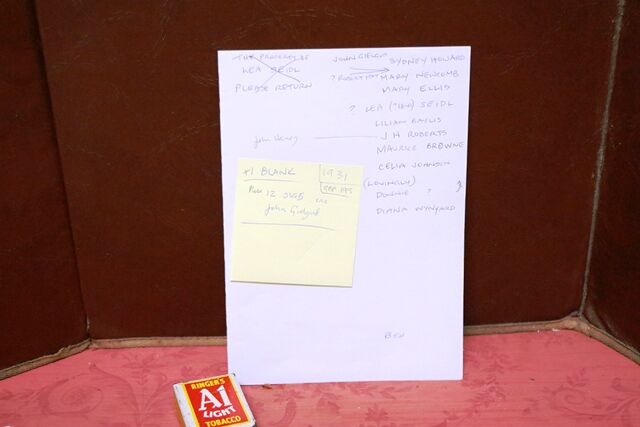 THE PROPERTY OF
LEA SEIDL
PLEASE RETURN
JOHN GIELGUD
SYDNEY HOWARD
? ROBERT
MARY NEWCOMB
MARY ELLIS
? LEA (THEO) SEIDL
LILIAN BAYLIS
John Henry
J H ROBERTS
MAURICE BROWNE
CELIA JOHNSON
(LOVINGLY)
DONNIE ?
DIANA WYNYARD
+1 BLANK
1931
Plus 12 SIGS
John Gielgud
BEN
RINGER'S
A1
LIGHT
TOBACCO